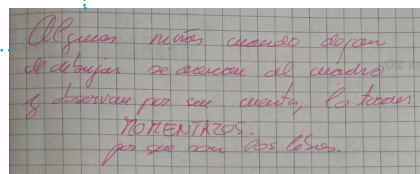 Algunas niñas cuando dejan
de dibujar se acercan al cuadro
y observan por su cuenta, lo tocan
MOMENTAZOS.
por que son dos